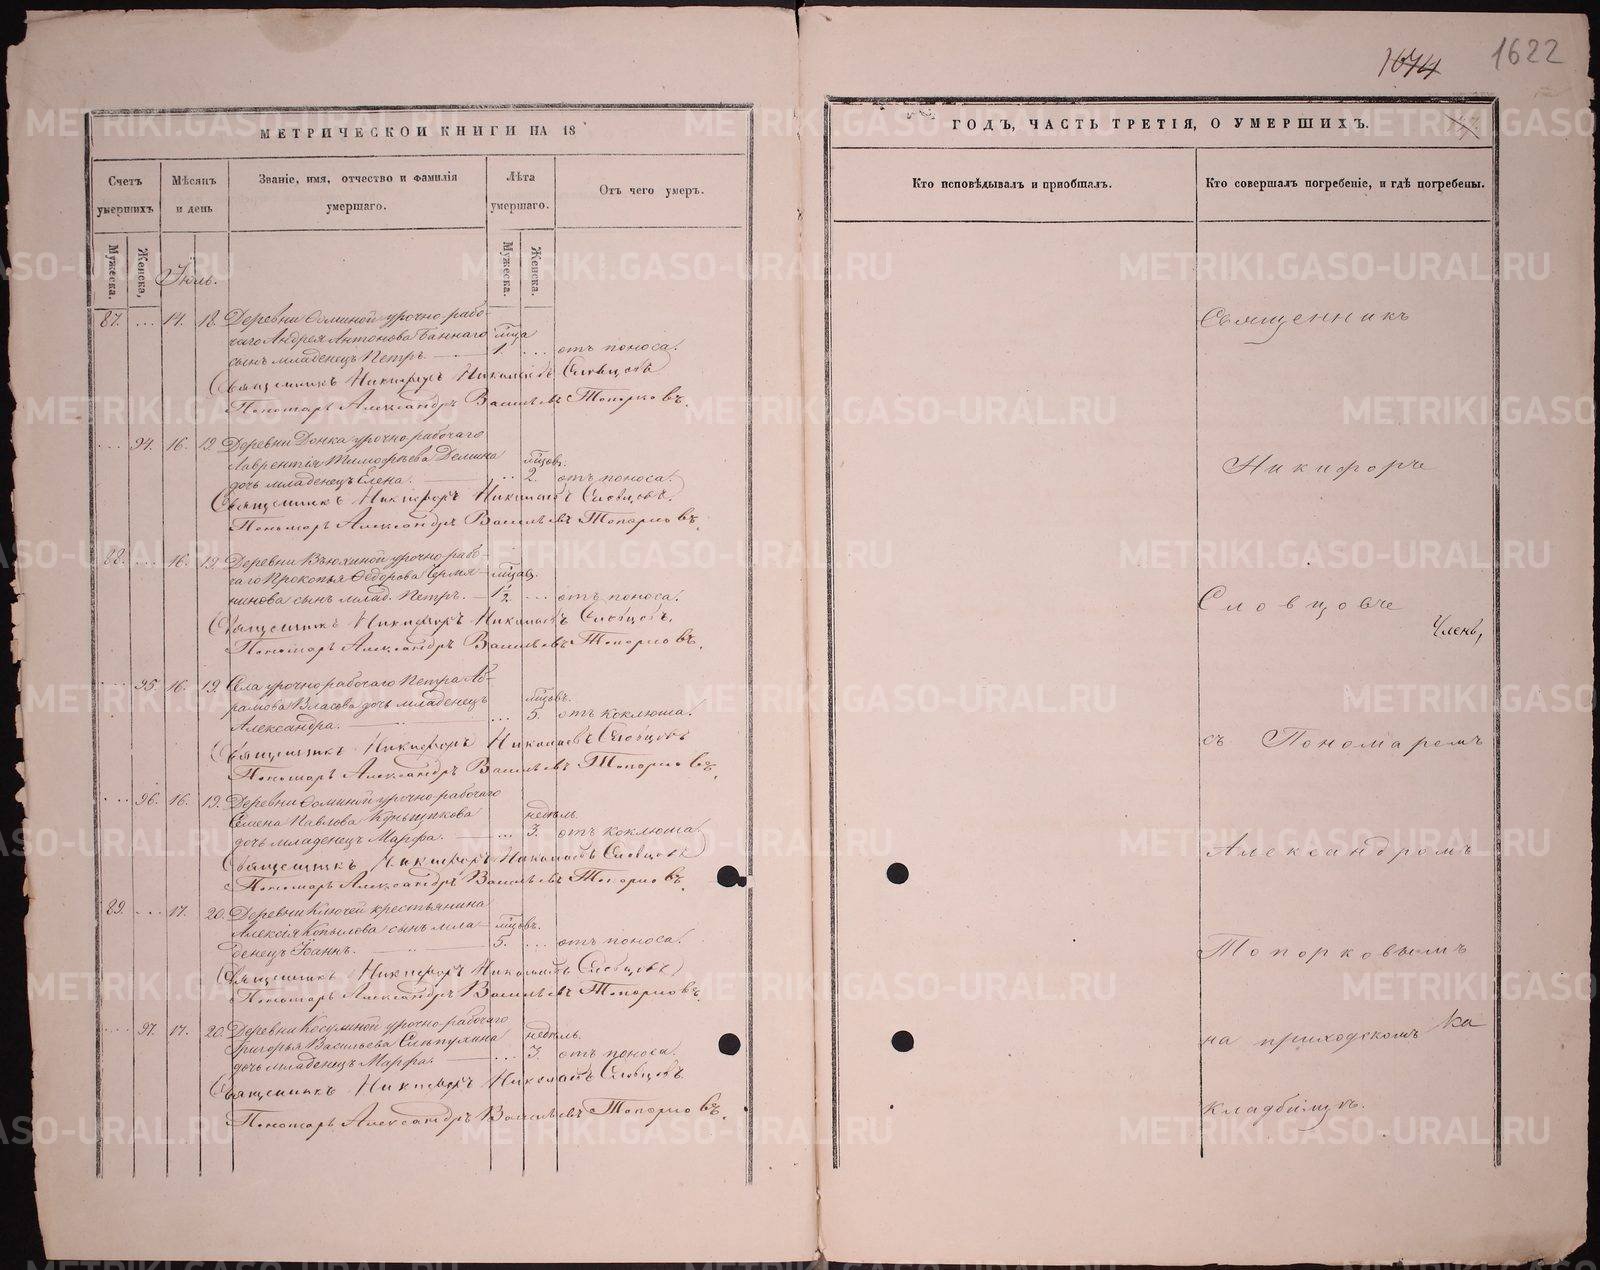 1674
1622
МЕТРИЧЕСКОЙ КНИГИ НА 18
Счетъ умершихъ.
Мѣсяцъ и день
Званіе, имя, отчество и фамилія умершаго.
Лѣта умершаго.
Отъ чего умеръ.
Мужеска.
Женска,
Мужеска.
Женска.
Іюль.
87. ... 14. 18. Деревни Фоминой урочно-рабо-
чаго Андрея Антонова Баннаго м҃ца
сынъ младенецъ Петръ 1. ... отъ поноса.
Священникъ Никифоръ Николаевъ Словцовъ
Пономарь Александръ Васильевъ Топорковъ.
... 94. 16. 19. Деревни Донка урочно-рабочаго
Лаврентія Тимофѣева Демина м҃цовъ.
дочь младенецъ Елена. ... 2. отъ поноса.
Священникъ Никифоръ Николаевъ Словцовъ.
Пономарь Александръ Васильевъ Топорковъ.
88. ... 16. 19. Деревни Вьюхиной урочно-рабо-
чаго Прокопья Ѳедорова Чермя- м҃цовъ.
нинова сынъ млад. Петръ. 1½ ... отъ поноса.
Священникъ Никифоръ Николаевъ Словцовъ.
Пономарь Александръ Васильевъ Топорковъ.
... 95. 16. 19. Села урочно-рабочаго Петра Аб-
рамова Власова дочь младенецъ м҃цовъ.
Александра. ... 5. отъ коклюша.
Священникъ Никифоръ Николаевъ Словцовъ
Пономарь Александръ Васильевъ Топорковъ.
... 96. 16. 19. Деревни Фоминой урочно-рабочаго
Семена Павлова недѣль.
дочь младенецъ Марфа. ... 3. отъ коклюша.
Священникъ Никифоръ Николаевъ Словцовъ
Пономарь Александръ Васильевъ Топорковъ.
89. ... 17. 20. Деревни Ключей крестьянина
Алексія Копылова сынъ мла- м҃цовъ.
денецъ Іоаннъ. 5. ... отъ поноса.
Священникъ Никифоръ Николаевъ Словцовъ
Пономарь Александръ Васильевъ Топорковъ.
... 97. 17. 20. Деревни Косулиной урочно-рабочаго
Григорья Васильева Слѣпухина недѣль.
дочь младенецъ Марфа. ... 3. отъ поноса.
Священникъ Никифоръ Николаевъ Словцовъ.
Пономарь Александръ Васильевъ Топорковъ.
ГОДЪ, ЧАСТЬ ТРЕТІЯ, О УМЕРШИХЪ.
Кто исповѣдывалъ и пріобщалъ.
Кто совершалъ погребеніе, и гдѣ погребены.
Священникъ
Никифоръ
Словцовъ
Членъ,
съ Пономаремъ
Александромъ
Топорковымъ
на приходскомъ
кладбищѣ.
METRIKI.GASO-URAL.RU